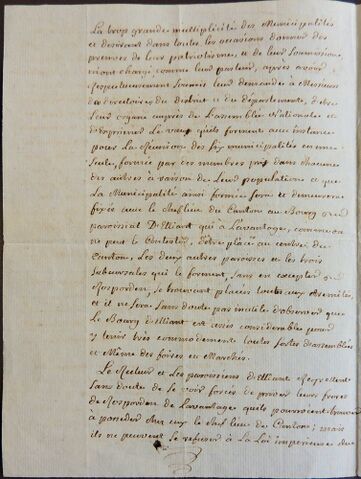 La trop grande multiplicité des Municipalités
et desirant dans toutes les occasions donner des
preuves de leur patriotisme, et de leur Soumission,
m'ont chargé comme leur pasteur, après avoir
respectueusement Soumis leur demande à Messieurs
du directoire du district et du département, d'etre
leur organe auprès de L'assemblée Nationale et
d'exprimer Le vœu quels forment avec instance
pour La Réunion des Six municipalités en une
Seule, formée par des membres pris dans chacune
des autres à raison de Leur population et que
La Municipalité ainsi formée sera et demeurera
fixée avec le chef lieu du Canton au Bourg
paroissial D'Elliant qui à L'avantage, comme on
ne peut le Contester, d'être placé au centre du
Canton, Les deux autres paroisses et les trois
Subcursales qui le forment, Sans en excepter
Rosporden, se trouvent placées toutes aux extremités,
et il ne sera Sans doute pas inutile d'observer que
Le Bourg d'Elliant est assès considerable pour
y tenir très commodement toutes sortes d'assemblées
et Même des foires et Marchés.
Le Recteur et Les paroissiens d'Elliant Regrettent
Sans doute de se voir forcés de priver leurs freres
de Rosporden de L'avantage quels pourroient trouver
à posseder chez eux le chef lieu de Canton; mais
ils ne peuvent se refuser à La Loi imperieuse du